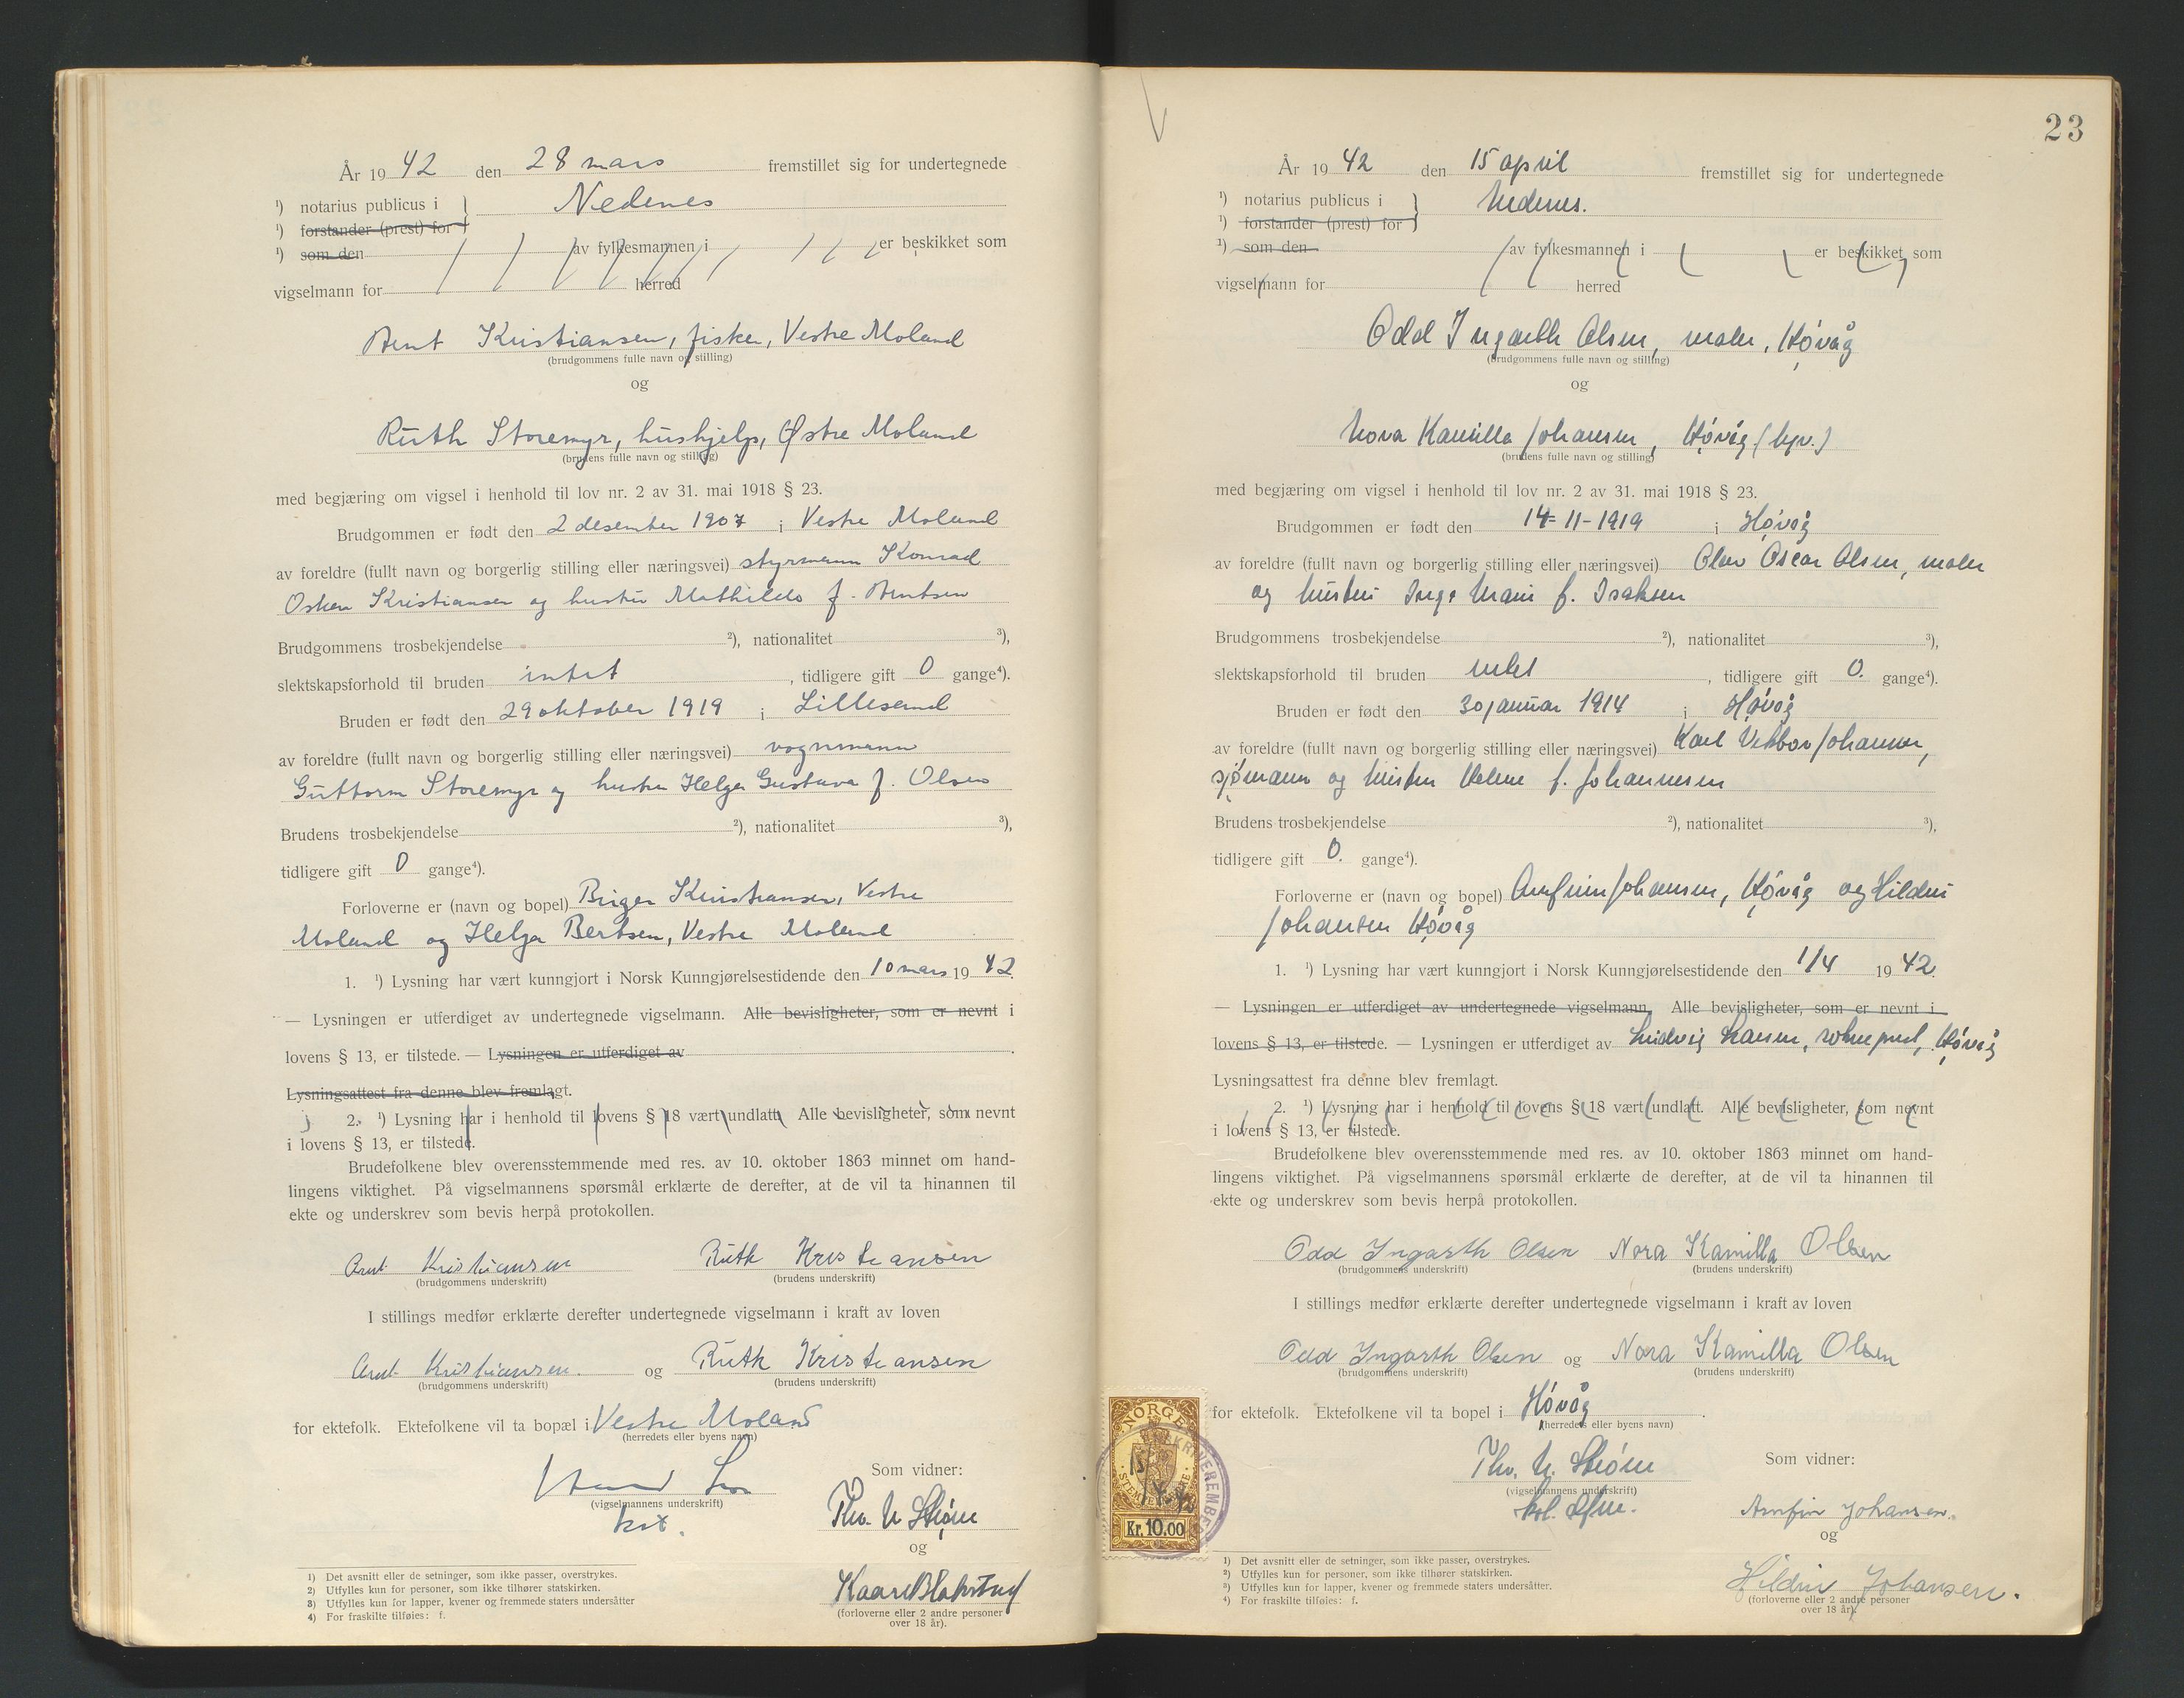 År 1942 den 28 mars fremstillet sig for undertegnede
¹) notarius publicus i } Nedenes
¹) forstander (prest) for
¹) som den av fylkesmannen i er beskikket som
vigselmann for herred
Arnt Kristiansen, fisker, Vestre Moland
(brudgommens fulle navn og stilling)
og
Ruth Storemyr, hushjelp, Østre Moland
(brudens fulle navn og stilling)
med begjæring om vigsel i henhold til lov nr. 2 av 31. mai 1918 § 23.
Brudgommen er født den 2 desember 1907 i Vestre Moland
av foreldre (fullt navn og borgerlig stilling eller næringsvei) styrmann Konrad
Oskar Kristiansen og hustru Mathilde f. Arntsen
Brudgommens trosbekjendelse ²), nationalitet ³),
slektskapsforhold til bruden intet, tidligere gift 0 gange⁴).
Bruden er født den 29 oktober 1919 i Lillesand
av foreldre (fullt navn og borgerlig stilling eller næringsvei) vognmann
Guttorm Storemyr og hustru Helga Gustava f. Olsen
Brudens trosbekjendelse ²), nationalitet ³),
tidligere gift 0 gange⁴).
Forloverne er (navn og bopel) Birger Kristiansen, Vestre
Moland og Helga Bertsen, Vestre Moland
1. ¹) Lysning har vært kunngjort i Norsk Kunngjørelsestidende den 10 mars 1942.
— Lysningen er utferdiget av undertegnede vigselmann. Alle bevisligheter, som er nevnt i
lovens § 13, er tilstede. — Lysningen er utferdiget av .
Lysningsattest fra denne blev fremlagt.
2. ¹) Lysning har i henhold til lovens § 18 vært undlatt. Alle bevisligheter, som nevnt
i lovens § 13, er tilstede.
Brudefolkene blev overensstemmende med res. av 10. oktober 1863 minnet om hand-
lingens viktighet. På vigselmannens spørsmål erklærte de derefter, at de vil ta hinannen til
ekte og underskrev som bevis herpå protokollen.
Arnt Kristiansen Ruth Kristiansen
(brudgommens underskrift) (brudens underskrift)
I stillings medfør erklærte derefter undertegnede vigselmann i kraft av loven
Arnt Kristiansen og Ruth Kristiansen
(brudgommens underskrift) (brudens underskrift)
for ektefolk. Ektefolkene vil ta bopæl i Vestre Moland
(herredets eller byens navn)
Som vidner:
(vigselmannens underskrift)
Thv. N Strøm
og
(forloverne eller 2 andre personer
over 18 år).
1) Det avsnitt eller de setninger, som ikke passer, overstrykes.
2) Utfylles kun for personer, som ikke tilhører statskirken.
3) Utfylles kun for lapper, kvener og fremmede staters undersåtter
4) For fraskilte tilføies: f.
23
År 1942 den 15 april fremstillet sig for undertegnede
¹) notarius publicus i } Nedenes.
¹) forstander (prest) for
¹) som den av fylkesmannen i er beskikket som
vigselmann for herred
Odd Ingarth Olsen, maler, Høvåg
(brudgommens fulle navn og stilling)
og
Nora Kamilla Johansen, Høvåg (hjv.)
(brudens fulle navn og stilling)
med begjæring om vigsel i henhold til lov nr. 2 av 31. mai 1918 § 23.
Brudgommen er født den 14-11-1919 i Høvåg
av foreldre (fullt navn og borgerlig stilling eller næringsvei) Olav Oscar Olsen, maler
og hustru Inga Marie f. Isaksen
Brudgommens trosbekjendelse ²), nationalitet ³),
slektskapsforhold til bruden intet, tidligere gift 0. gange⁴).
Bruden er født den 30 januar 1914 i Høvåg
av foreldre (fullt navn og borgerlig stilling eller næringsvei) Karl Viktor Johansen,
sjømann og hustru Helene f. Johannesen
Brudens trosbekjendelse ²), nationalitet ³),
tidligere gift 0. gange⁴).
Forloverne er (navn og bopel) Arnfinn Johansen, Høvåg og Hildur
Johansen Høvåg
1. ¹) Lysning har vært kunngjort i Norsk Kunngjørelsestidende den 1/4 1942.
— Lysningen er utferdiget av undertegnede vigselmann. Alle bevisligheter, som er nevnt i
lovens § 13, er tilstede. — Lysningen er utferdiget av Ludvig Hansen, sokneprest, Høvåg
Lysningsattest fra denne blev fremlagt.
2. ¹) Lysning har i henhold til lovens § 18 vært undlatt. Alle bevisligheter, som nevnt
i lovens § 13, er tilstede.
Brudefolkene blev overensstemmende med res. av 10. oktober 1863 minnet om hand-
lingens viktighet. På vigselmannens spørsmål erklærte de derefter, at de vil ta hinannen til
ekte og underskrev som bevis herpå protokollen.
Odd Ingarth Olsen Nora Kamilla Olsen
(brudgommens underskrift) (brudens underskrift)
I stillings medfør erklærte derefter undertegnede vigselmann i kraft av loven
Odd Ingarth Olsen og Nora Kamilla Olsen
(brudgommens underskrift) (brudens underskrift)
for ektefolk. Ektefolkene vil ta bopel i Høvåg.
(herredets eller byens navn)
Thv. N. Strøm Som vidner:
(vigselmannens underskrift)
Arnfin Johansen.
og
Hildur Johansen.
(forloverne eller 2 andre personer
over 18 år).
NORGE
Kr. 10,00
1) Det avsnitt eller de setninger, som ikke passer, overstrykes.
2) Utfylles kun for personer, som ikke tilhører statskirken.
3) Utfylles kun for lapper, kvener og fremmede staters undersåtter.
4) For fraskilte tilføies: f.